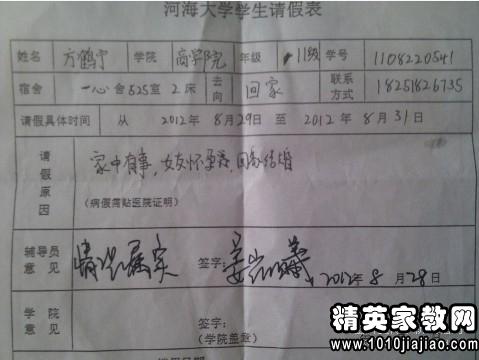 河海大学学生请假表
姓名 方鹤宁 学院 商学院 年级 11级 学号 1108220541
宿舍 一心舍825室2床 去向 回家 联系方式 18251826735
请假具体时间 从 2012年8月29日至2012年8月31日
请假原因
家中有事，女友怀孕，回家结婚
(病假需贴医院证明)
辅导员意见 情况属实 签字： 2012年8月28日
学院意见
签字：
(学院盖章)
精英家教网
www.1010jiajiao.com